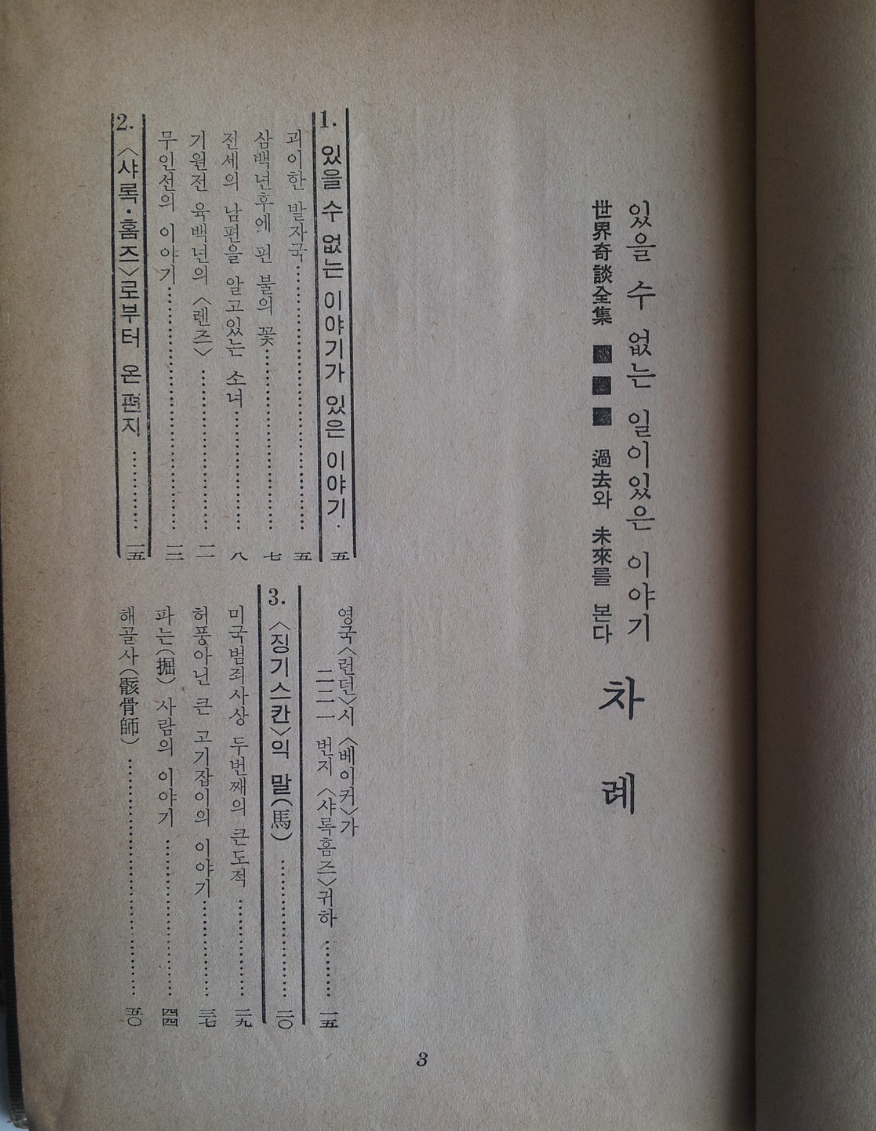 있을 수 없는 일이있은 이야기
世界奇談全集 ■■■ 過去와 未來를 본다
차례
1. 있을 수 없는 이야기가 있은 이야기· 五
괴이한 발자국…………… 五
삼백년후에 핀 불의 꽃…………… 七
전세의 남편을 알고있는 소녀…………… 八
기원전 육백년의 〈렌즈〉…………… 一一
무인선의 이야기…………… 一三
2. 〈샤록·홈즈〉로부터 온 편지………… 一五
영국〈런던〉시 〈베이커〉가
二二一 번지 〈샤록홈즈〉귀하……… 一五
3. 〈징기스칸〉의 말(馬)…………… 二〇
미국범죄사상 두번째의 큰도적………… 二九
허풍아닌 큰 고기잡이의 이야기………… 三七
파는(掘) 사람의 이야기…………… 四四
해골사(骸骨師)…………… 五〇
3